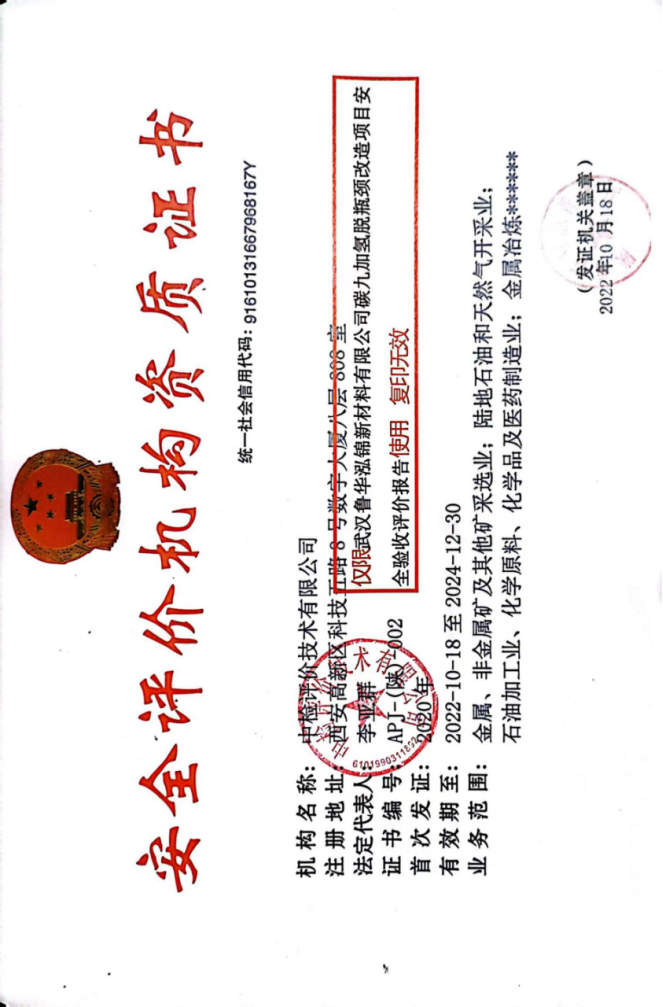 安全评价机构资质证书
统一社会信用代码：91610131667968167Y
机构名称：中检评价技术有限公司
注册地址：西安高新区科技五路 8 号数字大厦八层 808 室
法定代表人：李亚群
证书编号：APJ-(陕)-002
首次发证：2020 年
有效期至：2022-10-18 至 2024-12-30
业务范围：金属、非金属矿及其他矿采选业；陆地石油和天然气开采业；
石油加工业、化学原料、化学品及医药制造业；金属冶炼******
仅限武汉鲁华泓锦新材料有限公司碳九加氢脱瓶颈改造项目安
全验收评价报告使用 复印无效
中检评价技术有限公司
6101990311852
（发证机关盖章）
2022 年10 月18 日